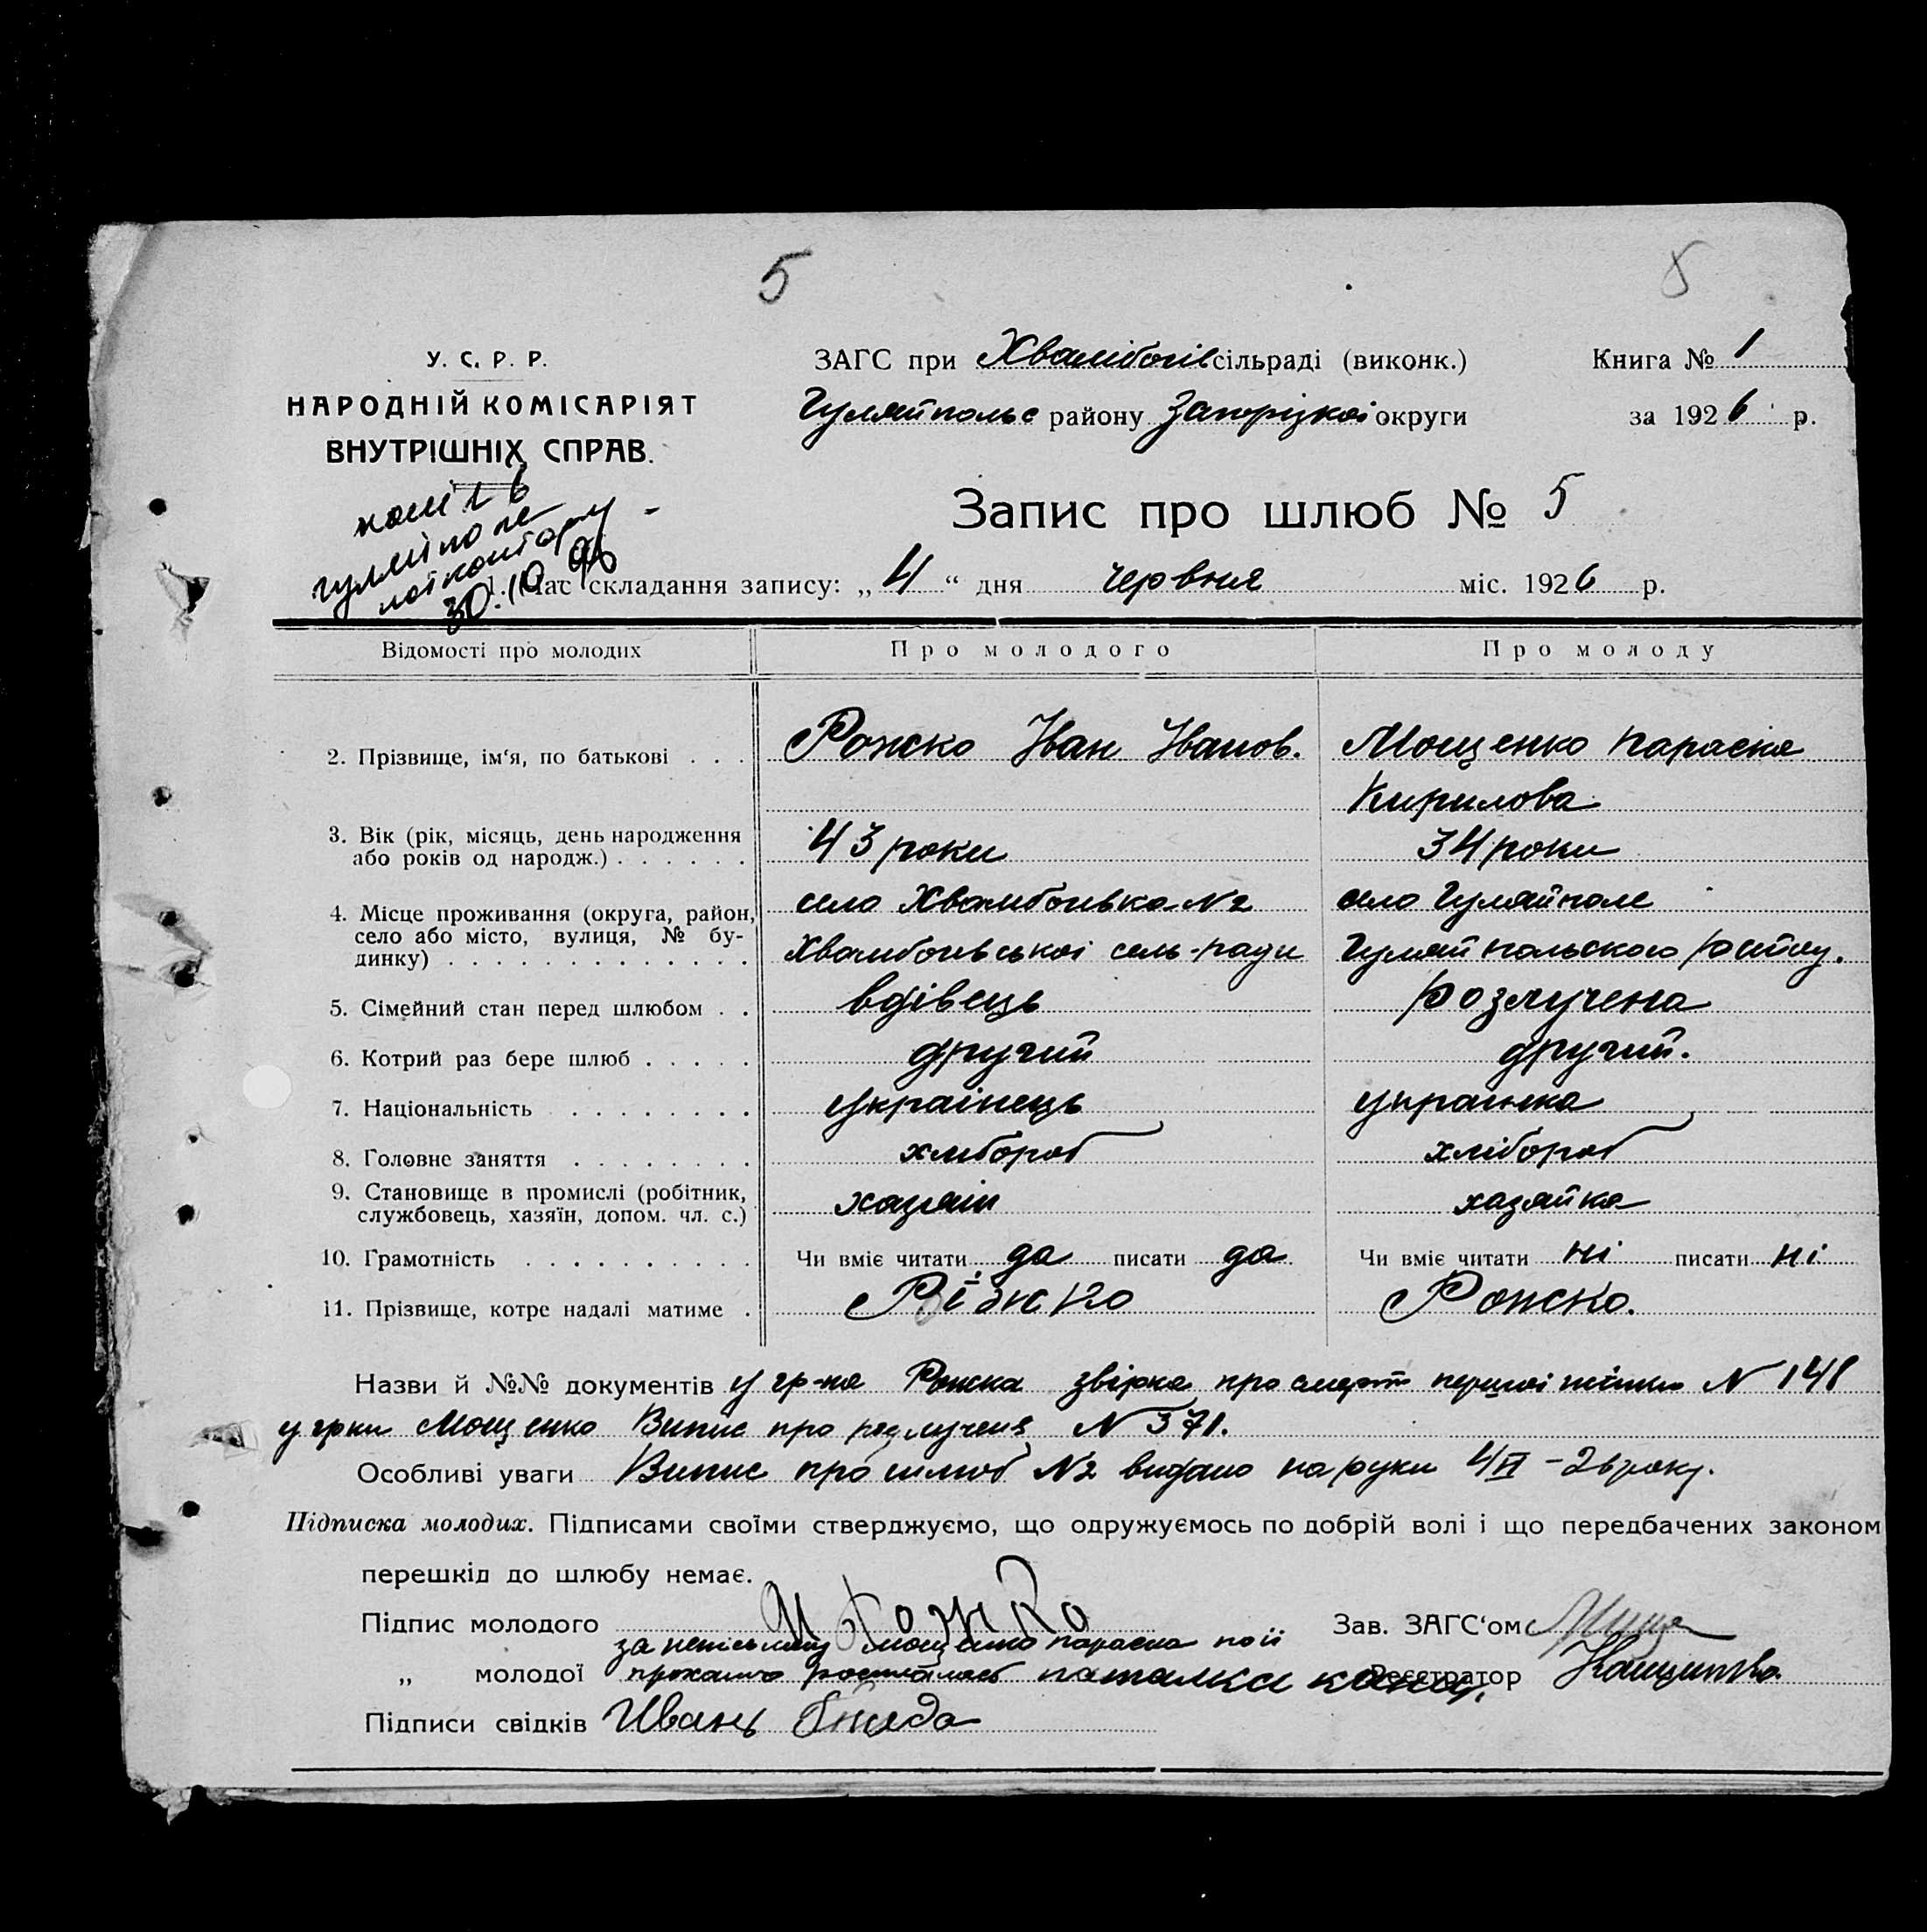 5
5
У. С. Р. Р.
НАРОДНІЙ КОМІСАРІЯТ
ВНУТРІШНІХ СПРАВ.
ЗАГС при Хвалібогів сільраді (виконк.)
Книга № 1
Гуляйпольс району Запорізкоі округи
за 1926 р.
Запис про шлюб № 5
30.10.96
1. Час складання запису: „4“ дня червня міс. 1926 р.
Відомості про молодих
Про молодого
Про молоду
2. Прізвище, ім‘я, по батькові . . .
Рожко Іван Іванов.
Мощенко Параска
Кирилова
3. Вік (рік, місяць, день народження
або років од народж.) . . . . . .
43 роки
34 роки
4. Місце проживання (округа, район,
село або місто, вулиця, № бу-
динку) . . . . . . . . . . . . .
село Хвалибогивка №2
Хвалибогивськоі сель-ради
село Гуляйполе
Гуляйпольского району.
5. Сімейний стан перед шлюбом . .
вдівець
Розлучена
6. Котрий раз бере шлюб . . . . .
другий
другий.
7. Національність . . . . . . . .
украінець
украинка
8. Головне заняття . . . . . . . .
хлибороб
хлібороб
9. Становище в промислі (робітник,
службовець, хазяїн, допом. чл. с.)
хазяін
хазяйка
10. Грамотність . . . . . . . . . .
Чи вміє читати да писати да
Чи вміє читати ні писати ні
11. Прізвище, котре надалі матиме .
Ріжко
Рожко.
Назви й №№ документів у гр-на Рожка звірка про смерть першоі жінки N 148
у грки Мощенко Випис про розлучення N 371.
Особливі уваги Випис про шлюб №2 видано на руки 4/VI – 26 року.
Підписка молодих. Підписами своїми стверджуємо, що одружуємось по добрій волі і що передбачених законом
перешкід до шлюбу немає.
Підпис молодого И Рожко
Зав. ЗАГС‘ом
за Мощенко Параска по її
„ молодої
Реєстратор
Підписи свідків Иванъ